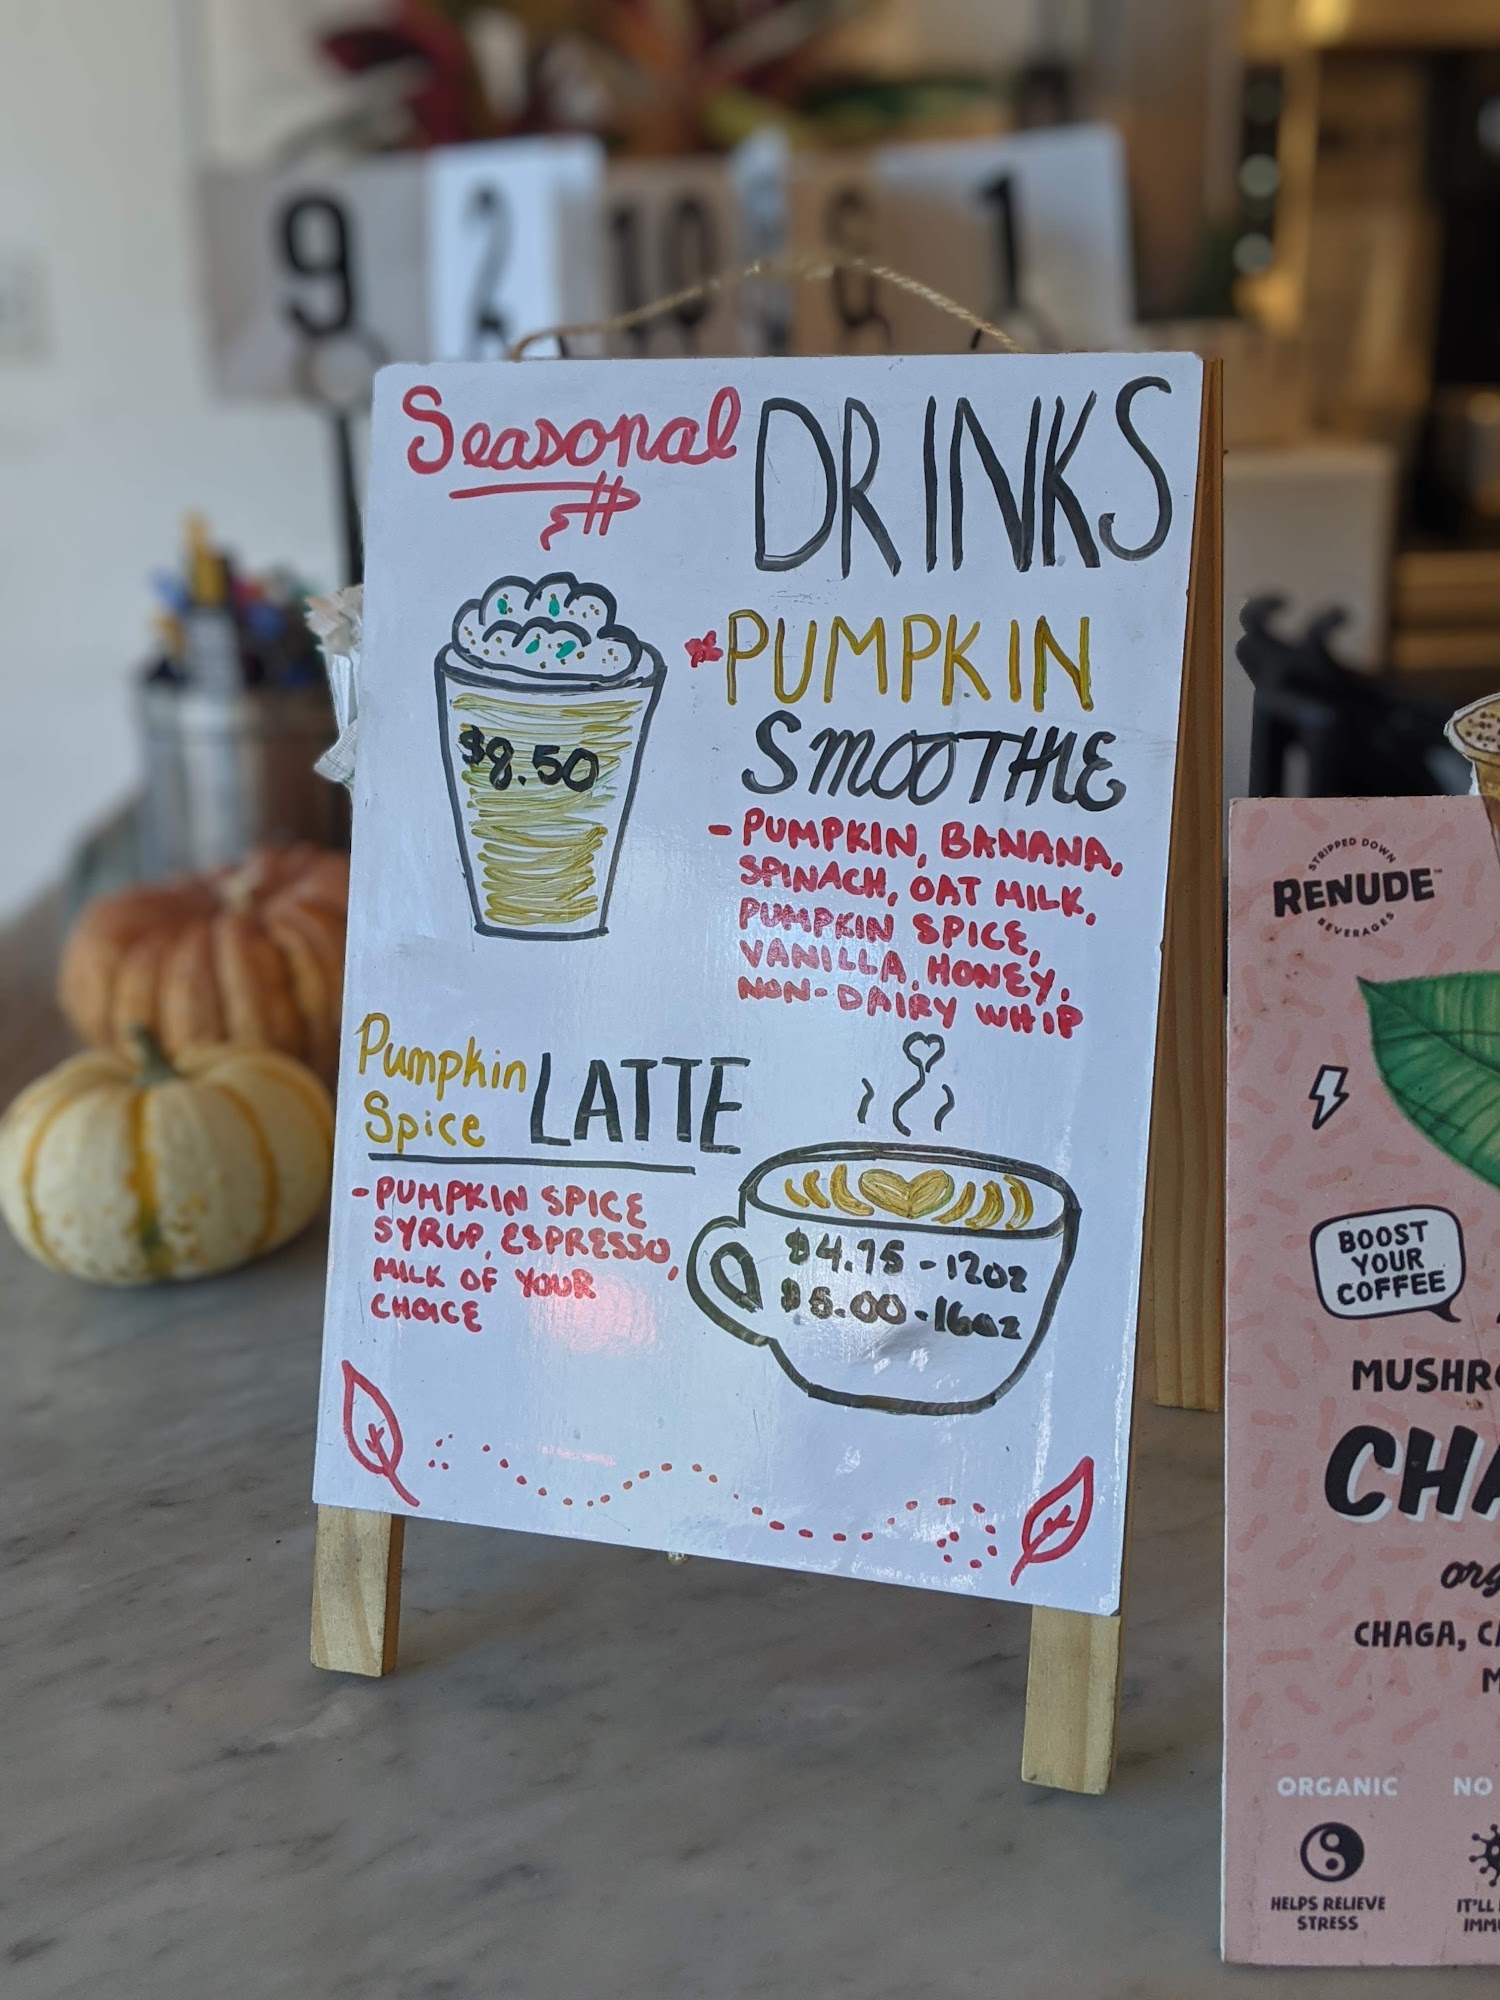 9 2 10 6 1
Seasonal DRINKS
$8.50
PUMPKIN
SMOOTHIE
- PUMPKIN, BANANA,
SPINACH, OAT MILK,
PUMPKIN SPICE,
VANILLA, HONEY,
NON-DAIRY WHIP
Pumpkin
Spice LATTE
- PUMPKIN SPICE
SYRUP, ESPRESSO,
MILK OF YOUR
CHOICE
$4.75 - 12oz
$5.00 - 16oz
STRIPPED DOWN
RENUDE™
BEVERAGES
BOOST
YOUR
COFFEE
MUSHR
CHA
org
CHAGA, CA
M
ORGANIC NO
HELPS RELIEVE
STRESS
IT'LL
IMM